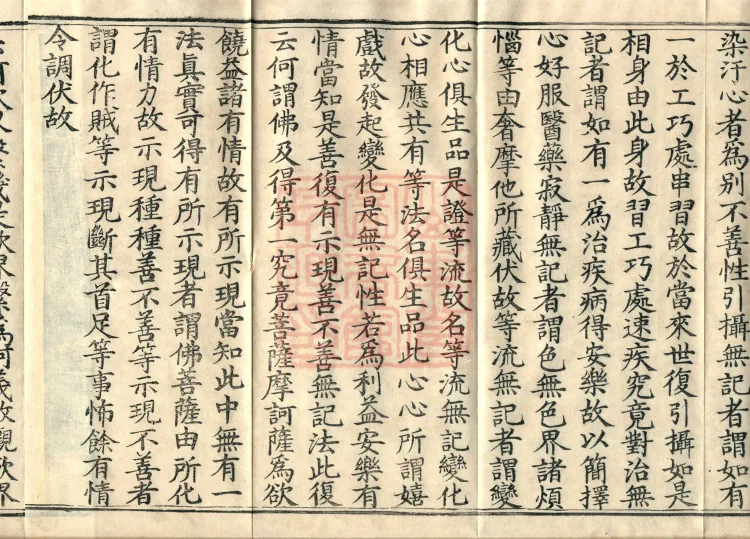 染汙心者為別不善性引攝無記者謂如有
一於工巧處串習故於當來世復引攝如是
相身由此身故習工巧處速疾究竟對治無
記者謂如有一為治疾病得安樂故以簡擇
心好服醫藥寂靜無記者謂色無色界諸煩
惱等由奢摩他所藏伏故等流無記者謂變
化心俱生品是證等流故名等流無記變化
心相應共有等法名俱生品此心心所謂嬉
戲故發起變化是無記性若為利益安樂有
情當知是善復有示現善不善無記法此復
云何謂佛及得第一究竟菩薩摩訶薩為欲
饒益諸有情故有所示現當知此中無有一
法真實可得有所示現者謂佛菩薩由所化
有情力故示現種種善不善等示現不善者
謂化作賊等示現斷其首足等事怖餘有情
令調伏故